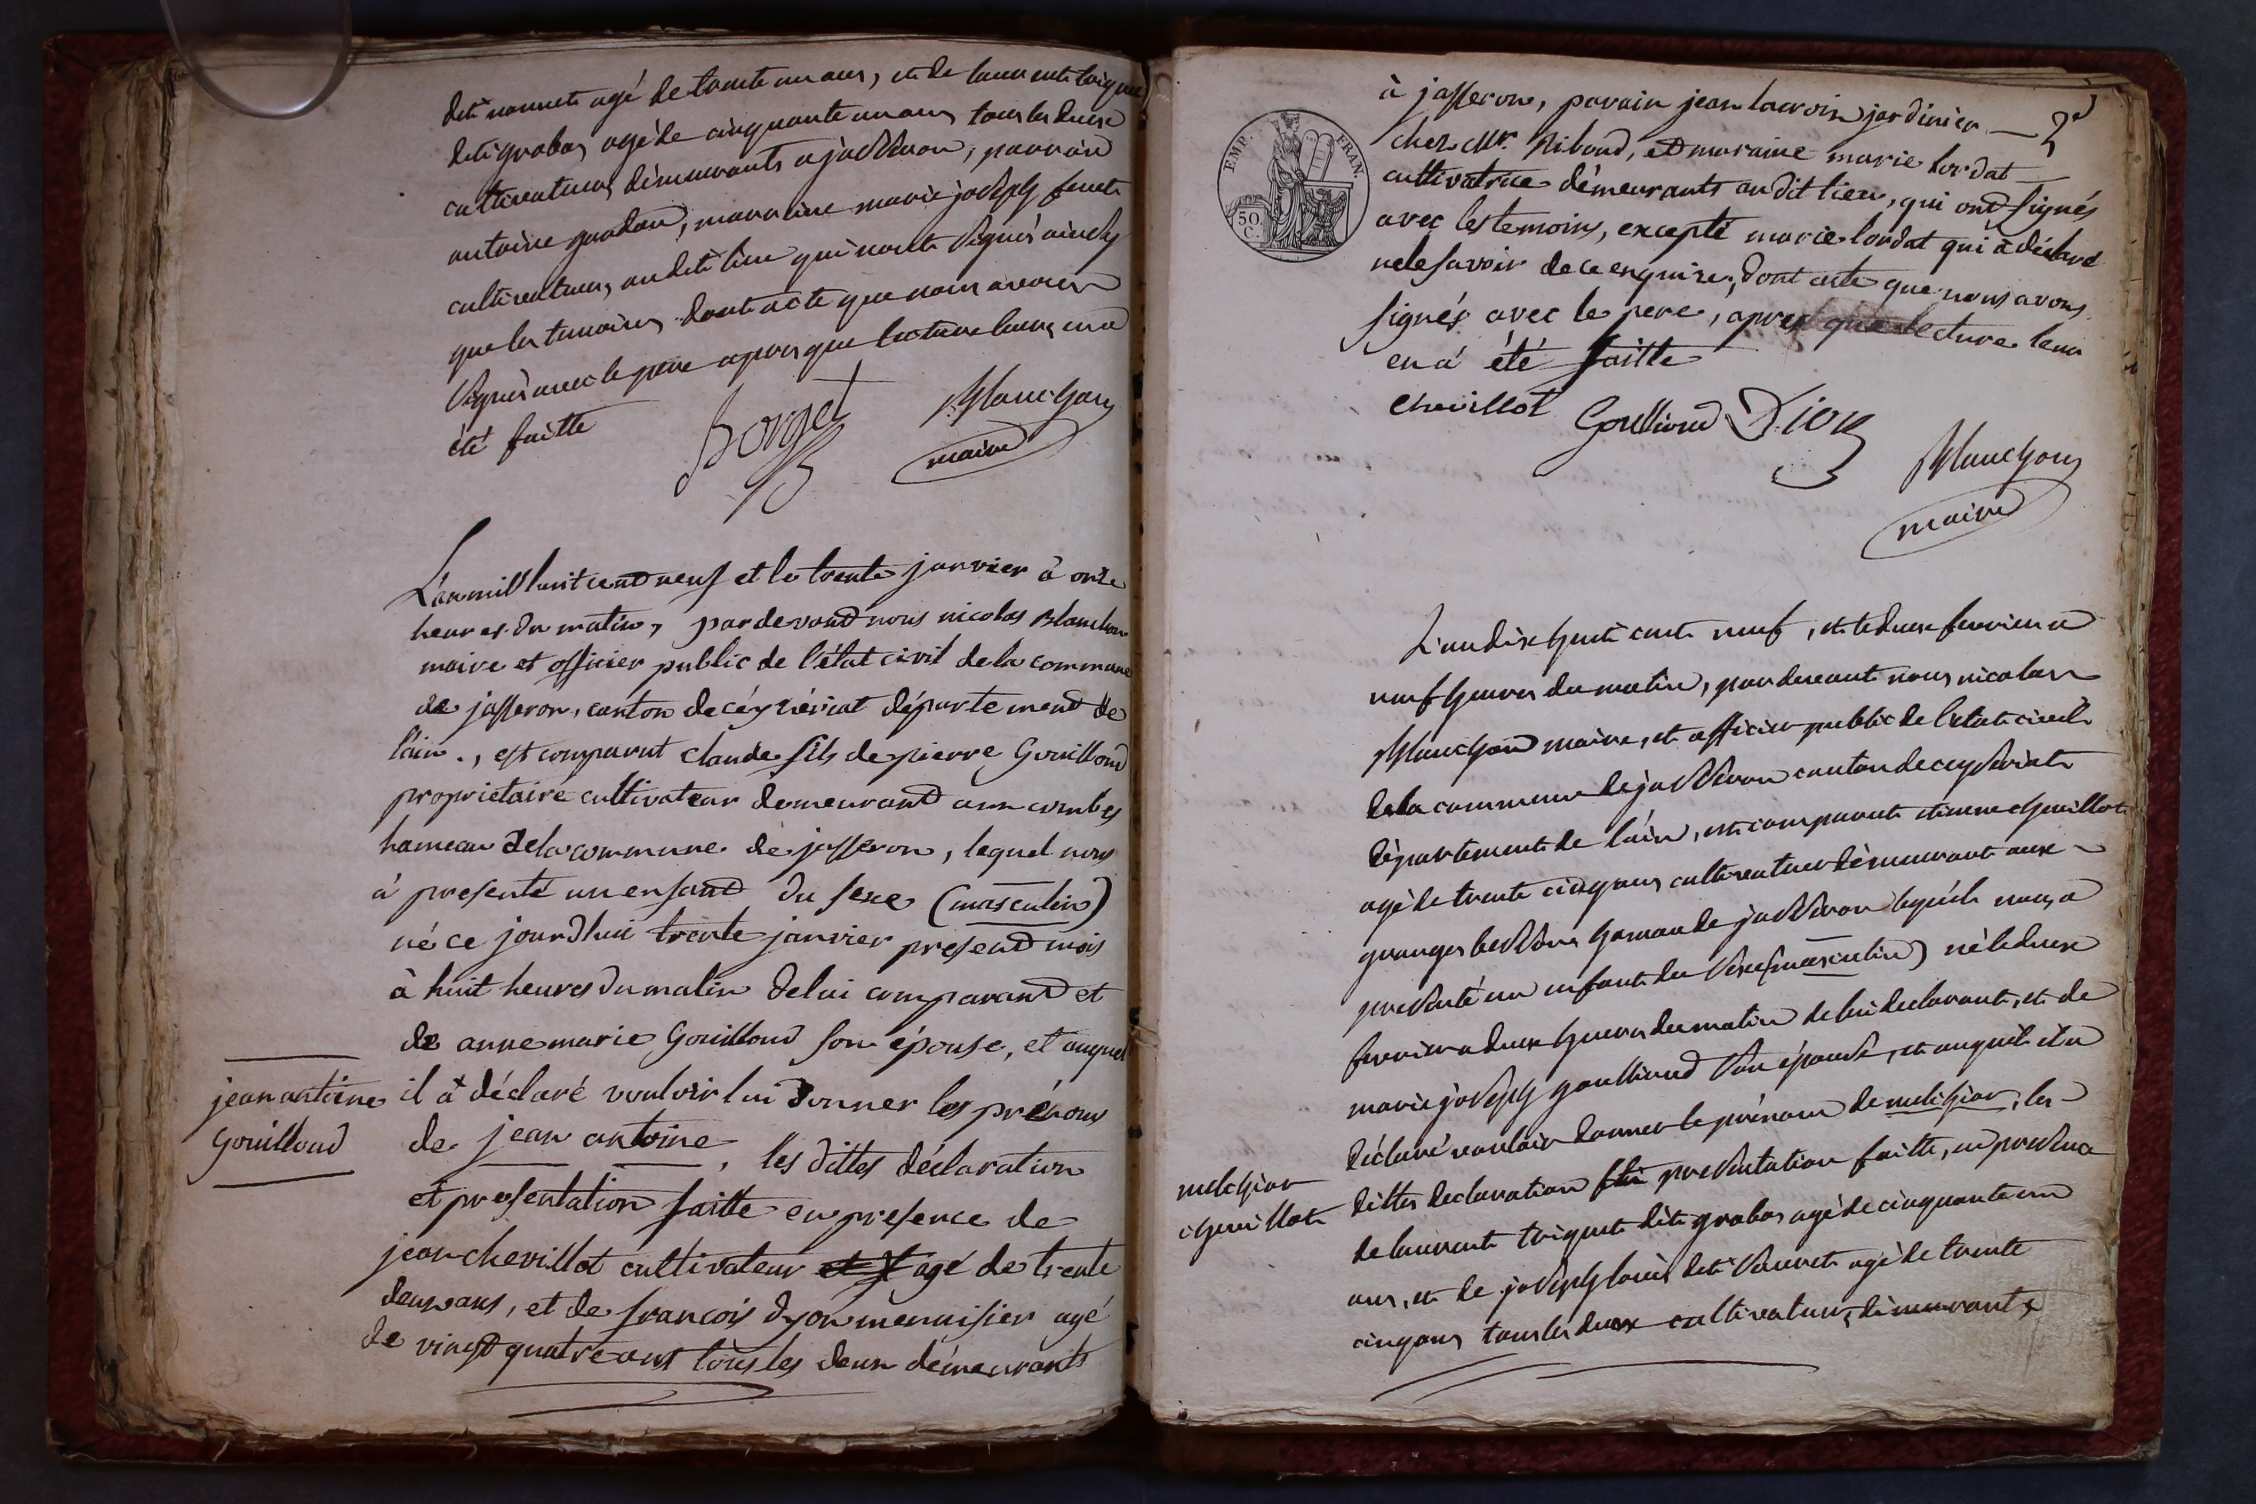 dit nonnet agé de trente un ans, et de laurent triquet
dit grabas agé de cinquante un ans tous les deux
cultivateurs démeurants a jasseron, parrain
antoine goudon, marraine marie joseph feuct
cultivateurs, au dit lieu qui n'ont signés ainsy
que les temoins, dont acte que nous avons
signés avec le pere apres que lecture leurs en a
été faitte
Borget
Blanchon
maire
L'an mil huit cent neuf et le trente janvier à onze
heures du matin, par devant nous nicolas Blanchon
maire et officier public de l'état civil de la commune
de jasseron, canton de céyzériat département de
l'ain., est comparut claude fils de pierre Gouilloud
propriétaire cultivateur demeurant aux combes
hameau de la commune de jasseron, lequel nous
à présenté un enfant du sexe (masculin)
né ce jourdhui trente janvier present mois
à huit heures du matin de lui comparant et
de anne marie Gouilloud son épouse, et auquel
il a déclaré vouloir lui donner les prénoms
de jean antoine, les dittes déclaration
et presentation faitte en presence de
jean chevillot cultivateur et agé de trente
deux ans, et de francois dyon menuisier agé
de vingt quatre ans tous les deux démeurants
jean antoine
Gouilloud
2e
à jasseron, parain jean lacroix jardinier
chez Mr. Riboud, et maraine marie lordat
cultivatrice démeurants au dit lieu, qui ont signés
avec les temoins, excepté marie lordat qui a déclaré
ne le savoir de ce enquise, dont acte que nous avons
signés avec le pere, apres que lecture leur
en à été faitte
chevillot Goullioud Dion
Blanchon
maire
L'an dix huit cent neuf, et le deux fevrier a
neuf heures du matin, par devant nous nicolas
Blanchon maire, et officier public de l'etat civil
de la commune de jasseron canton de ceyseriat
département de l'ain, est comparut etienne chevillot
agé de trente cinq ans cultivateur démeurant aux
granges hamau de jasseron lequel nous a
presenté un enfant du sexe (masculin) né le deux
fevrier a deux heures du matin de lui declarant, et de
marie joseph goullioud son épouse, et auquel il a
déclaré vouloir donner le prénom de melchior, les
dittes declaration et presentation faitte, en presence
de laurent triquet dit grabas agé de cinquante un
ans, et de joseph louis dit agé de trente
cinq ans tous les deux cultivateurs démeurants
melchior
chevillot
EMP. FRAN.
50
C.